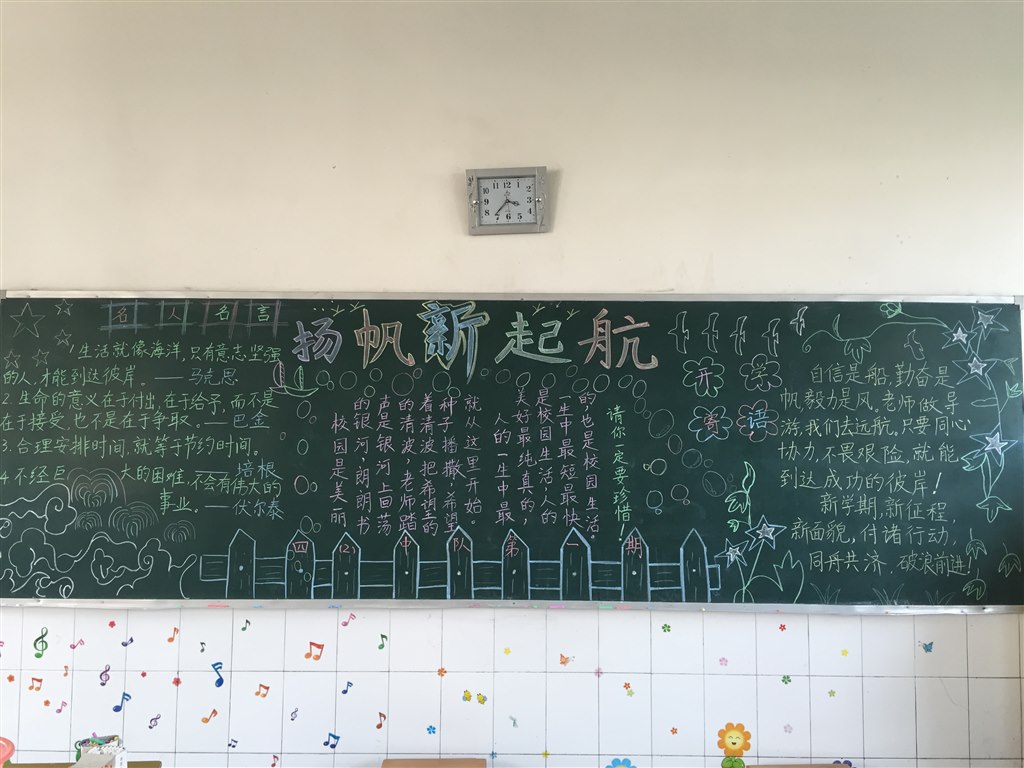 扬帆新起航
名人名言
1 生活就像海洋,只有意志坚强
的人,才能到达彼岸。——马克思
2.生命的意义在于付出,在于给予,而不是
在于接受,也不是在于争取。——巴金
3.合理安排时间,就等于节约时间。
——培根
4.不经巨大的困难,不会有伟大的
事业。——伏尔泰
校园是美丽
的银河,朗朗书
声是银河上回荡
的清波,老师踏
着清波把希望的
种子播撒,希望
就从这里开始。
人的一生中最
美好最纯真的,
是校园生活,人的
一生中最短最快
的,也是校园生活。
请你一定要珍惜!
开学
寄话
自信是船,勤奋是
帆,毅力是风。老师做导
游,我们去远航。只要同心
协力,不畏艰险,就能
到达成功的彼岸!
新学期,新征程,
新面貌,付诸行动,
同舟共济,破浪前进!
四(2)中队第一期
11 12 1
10 2
9 3
8 4
7 6 5